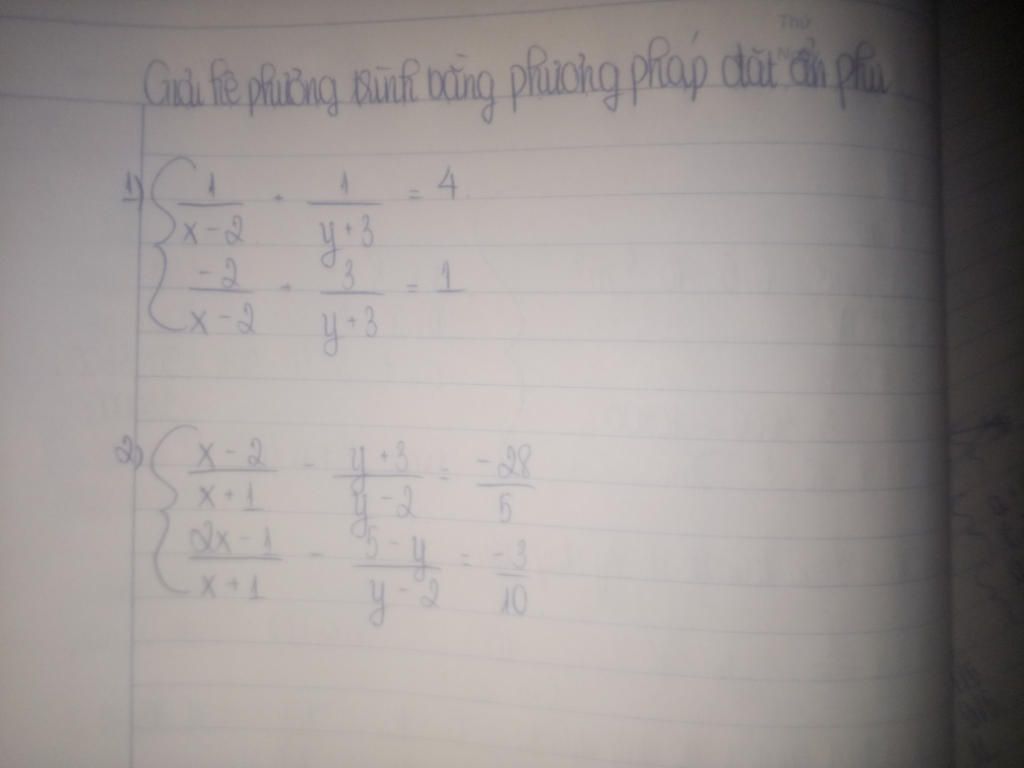 Thứ
Giải hệ phương trình bằng phương pháp đặt ẩn phụ
1) { 1/(x-2) + 1/(y+3) = 4
-2/(x-2) + 3/(y+3) = 1
2) { (x-2)/(x+1) - (y+3)/(y-2) = -28/5
(2x-1)/(x+1) - (5-y)/(y-2) = -3/10